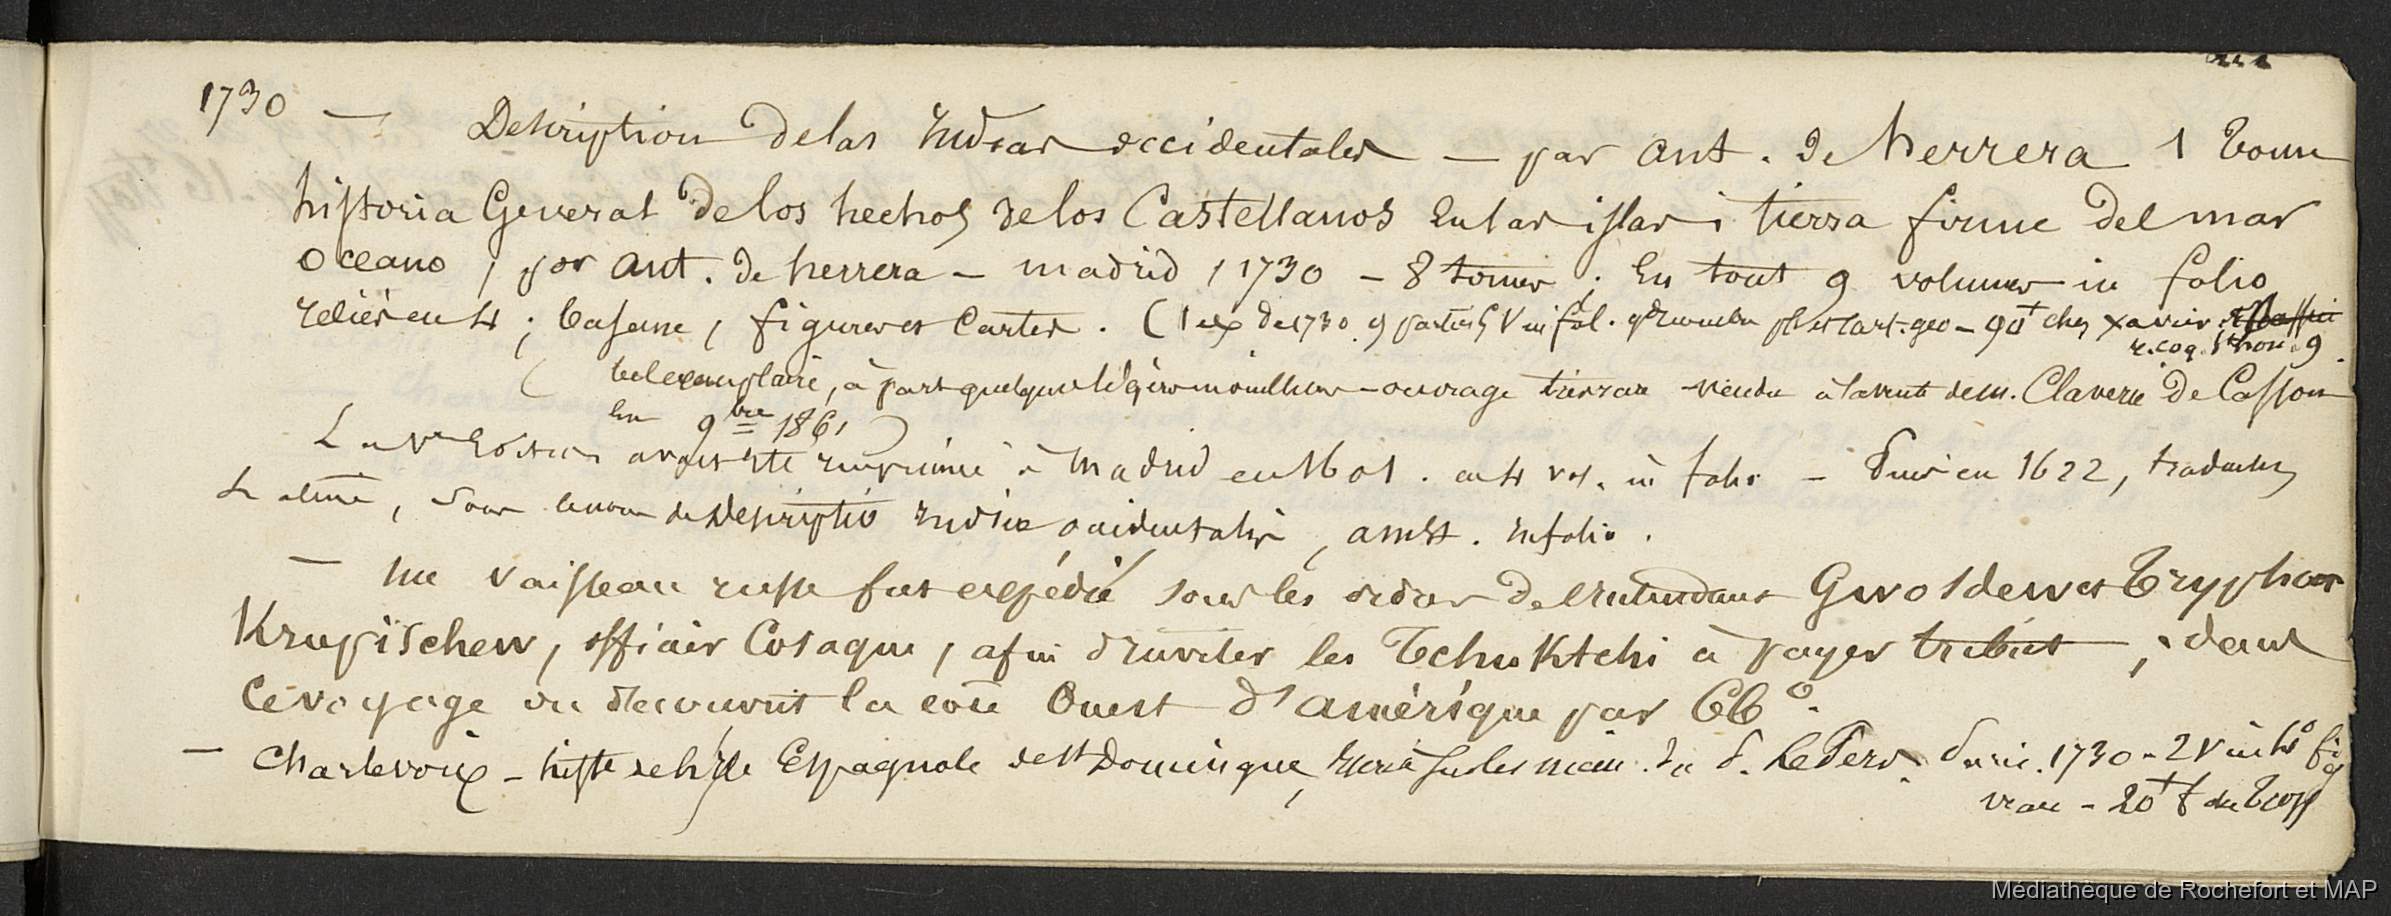 1730 — Description de las Indias occidentales — par ant. de herrera 1 Tome
historia General de los hechos de los Castellanos en las islas i tierra firme del mar
oceano, por ant. de herrera — madrid, 1730 — 8 tomes; En tout 9 volumes in folio
reliés en 4; basane, figures et Cartes. (1 ex de 1730. 9 parties 5 V in fol. pl et cart. geo — 90f chez xavier
r. coq. St hon. 9.
(bel exemplaire, à part quelques légères mouillures — ouvrage très rare — vendu à la vente de m. Claverie de Casson
En 9bre 1861)
La 1re Edition avait été imprimée à Madrid en 1601. en 4 vol. in folio — Puis en 1622, traduction
Latine, sous le nom de Descriptio Indiæ occidentalis, amst. in folio.
— Un vaisseau russe fut expédié sous les ordres de Gwosdew et Tryphon
Krupischew, officier Cosaque, afin d'inviter les Tchuktchi à payer tribut; dans
ce voyage on decouvrit la côte Ouest d'amérique par 66°.
— Charlevoix — histre de l'isle Espagnole de St Domingue, sur les mém. du P. Le Pers. Paris. 1730 — 2 V in 4° fig
veau — 20f chez Tross